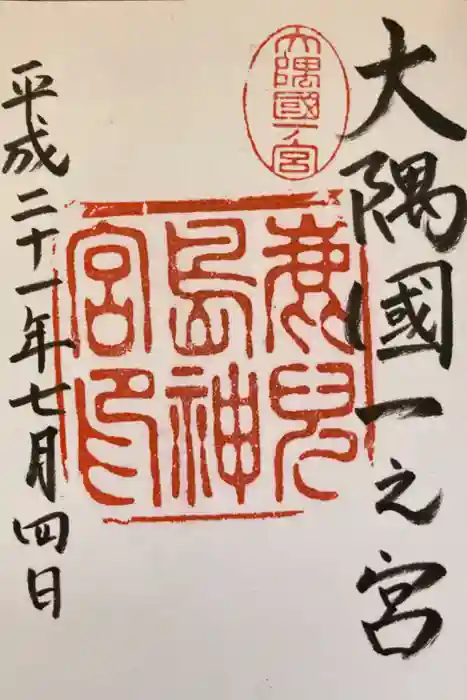 大隅國一之宮
大隅國一宮
鹿兒
島神
宮印
平成二十一年七月四日